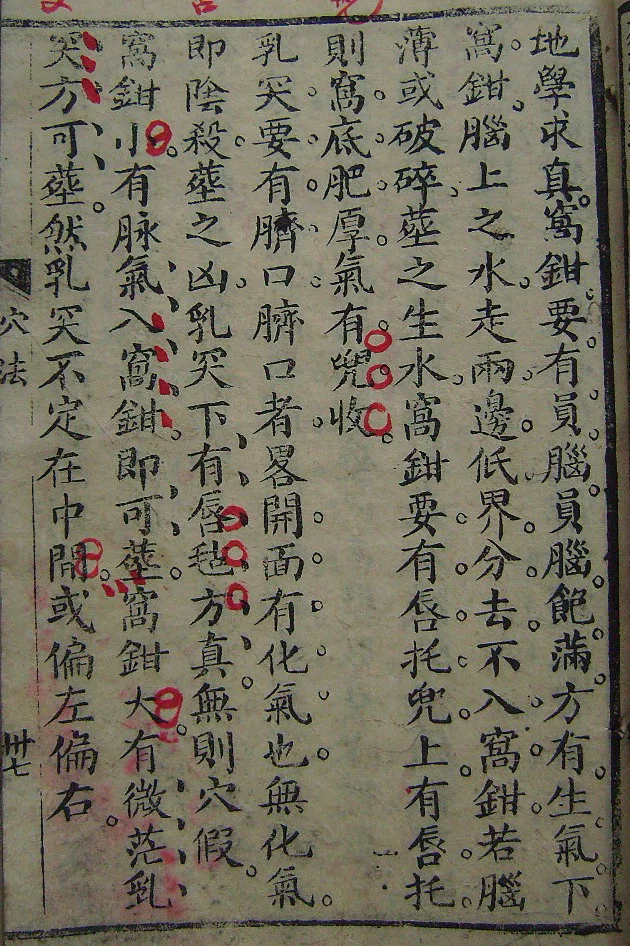 地學求真窩鉗要有員腦員腦飽滿方有生氣下
窩鉗腦上之水走兩邊低界分去不入窩鉗若腦
薄或破碎塟之生水窩鉗要有唇托兜上有唇托
則窩底肥厚氣有兜收
乳突要有臍口臍口者畧開面有化氣也無化氣
即陰殺塟之凶乳突下有唇毡方真無則穴假
窩鉗小有脉氣入窩鉗即可塟窩鉗大有微茫乳
突方可塟然乳突不定在中間或偏左偏右
穴法
卅七